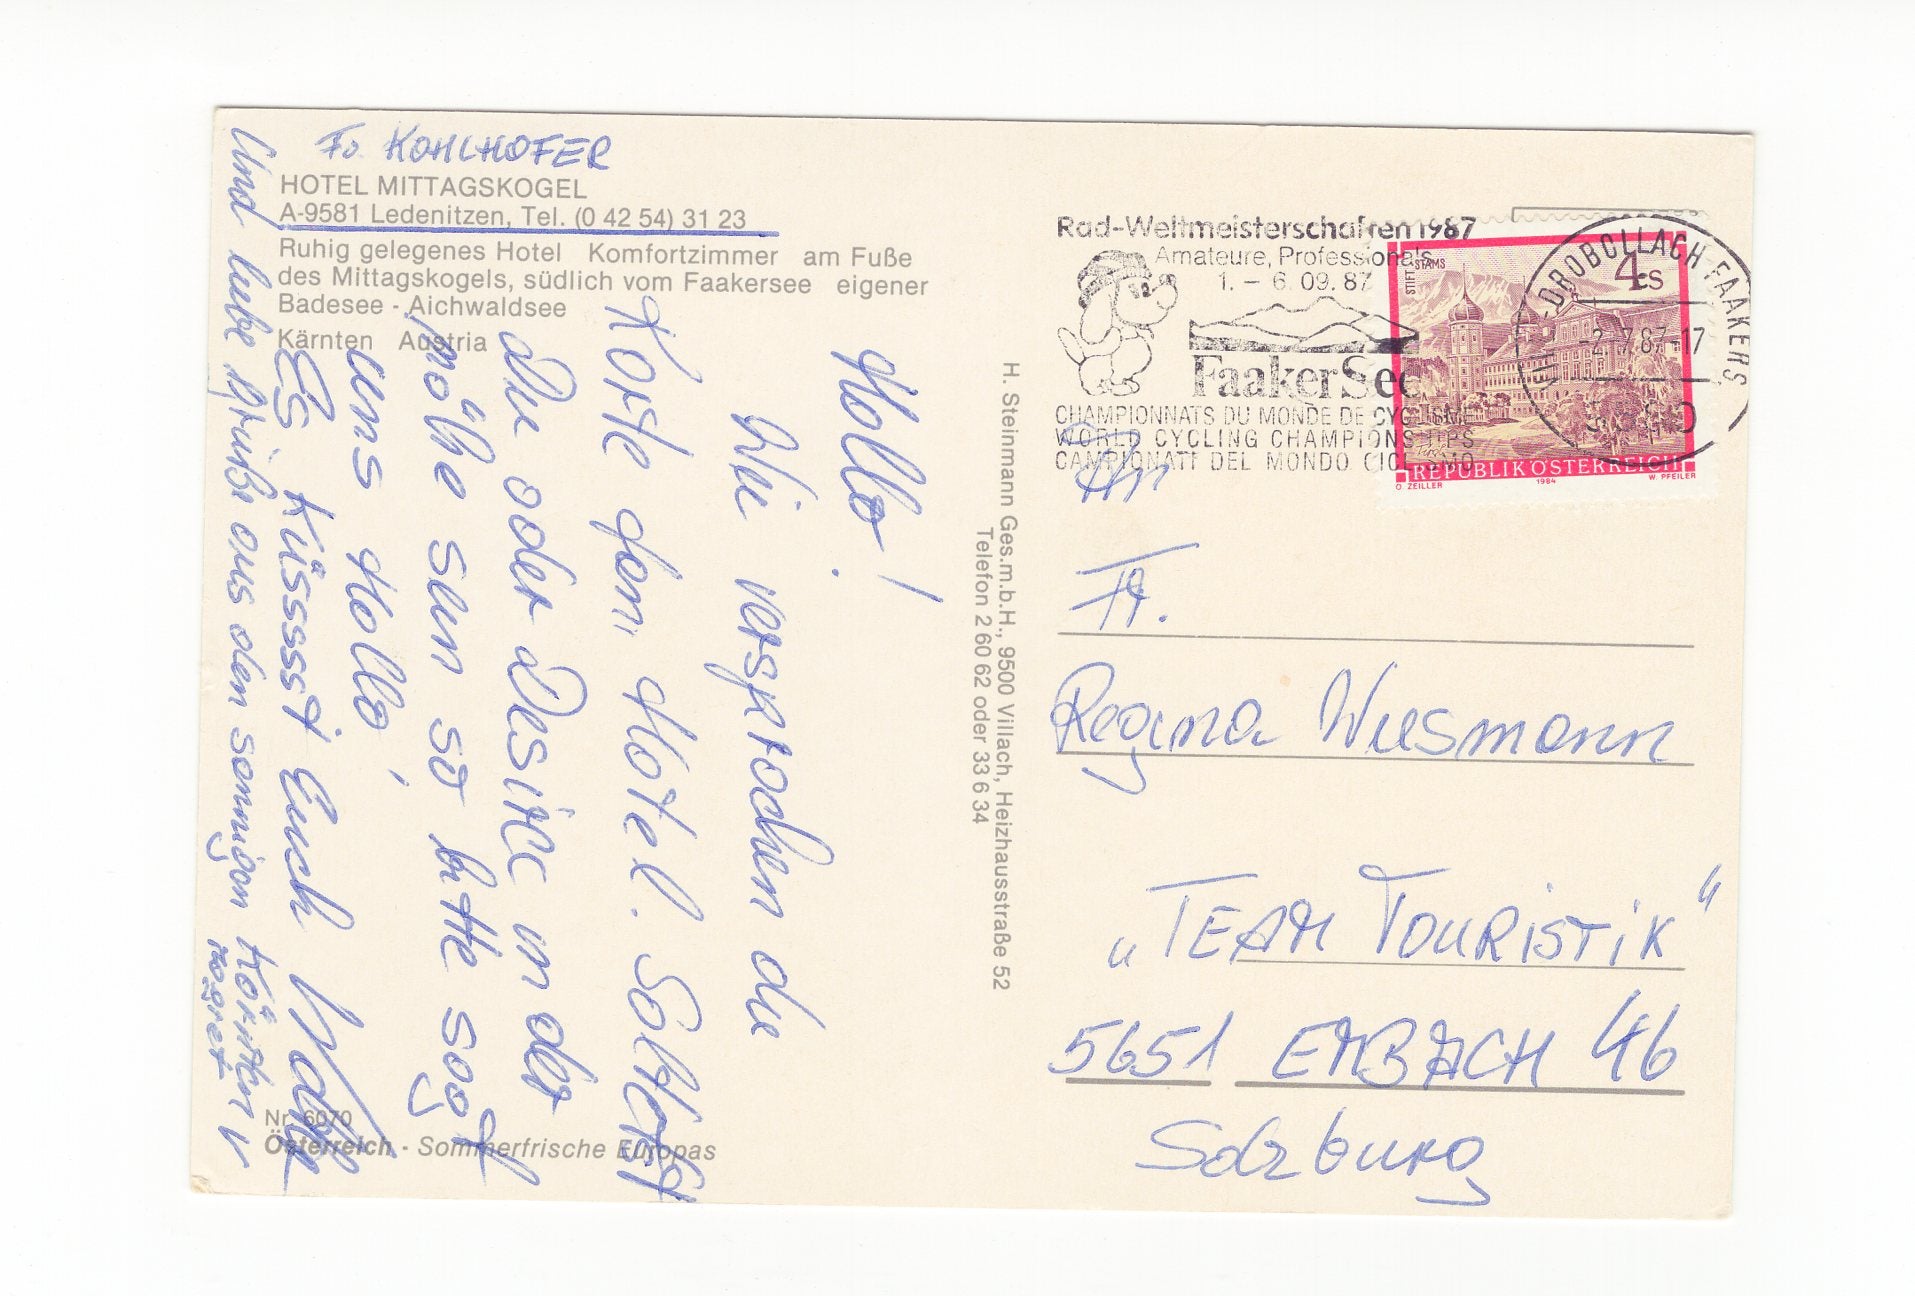 Fa. KOHLHOFER
HOTEL MITTAGSKOGEL
A-9581 Ledenitzen, Tel. (0 42 54) 31 23
Ruhig gelegenes Hotel Komfortzimmer am Fuße
des Mittagskogels, südlich vom Faakersee eigener
Badesee - Aichwaldsee
Kärnten Austria
Hallo!
Wie versprochen die
Karte vom Hotel. Solltest
Du oder Desirée in der
Nähe sein so bitte sagt
uns Hallo!
Es Küsssst Euch
Und liebe Grüße aus den sonnigen Kärnten v
Margret
Nr. 6070
Österreich - Sommerfrische Europas
H. Steinmann Ges.m.b.H., 9500 Villach, Heizhausstraße 52
Telefon 2 60 62 oder 33 6 34
Rad-Weltmeisterschaften 1987
Amateure, Professionals
1. – 6. 09. 87
Faaker See
CHAMPIONNATS DU MONDE DE CYCLISME
WORLD CYCLING CHAMPIONSHIPS
CAMPIONATI DEL MONDO CICLISMO
STIFT STAMS
4 S
REPUBLIK ÖSTERREICH
O ZEILLER 1984 W. PFEILER
-DROBOLLACH FAAKERS
-2.-7.87-17
An
Fr.
Regina Wiesmann
„TEAM TOURISTIK“
5651 EMBACH 46
Salzburg